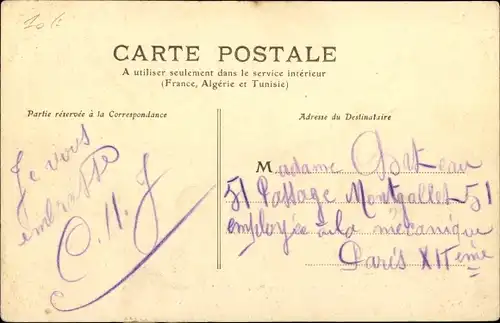 CARTE POSTALE
A utiliser seulement dans le service intérieur
(France, Algérie et Tunisie)
Partie réservée à la Correspondance
Adresse du Destinataire
Je vous
embrasse
O. H. J
Madame
51 Passage Montgallet 51
employée à la mécanique
Paris XIIème